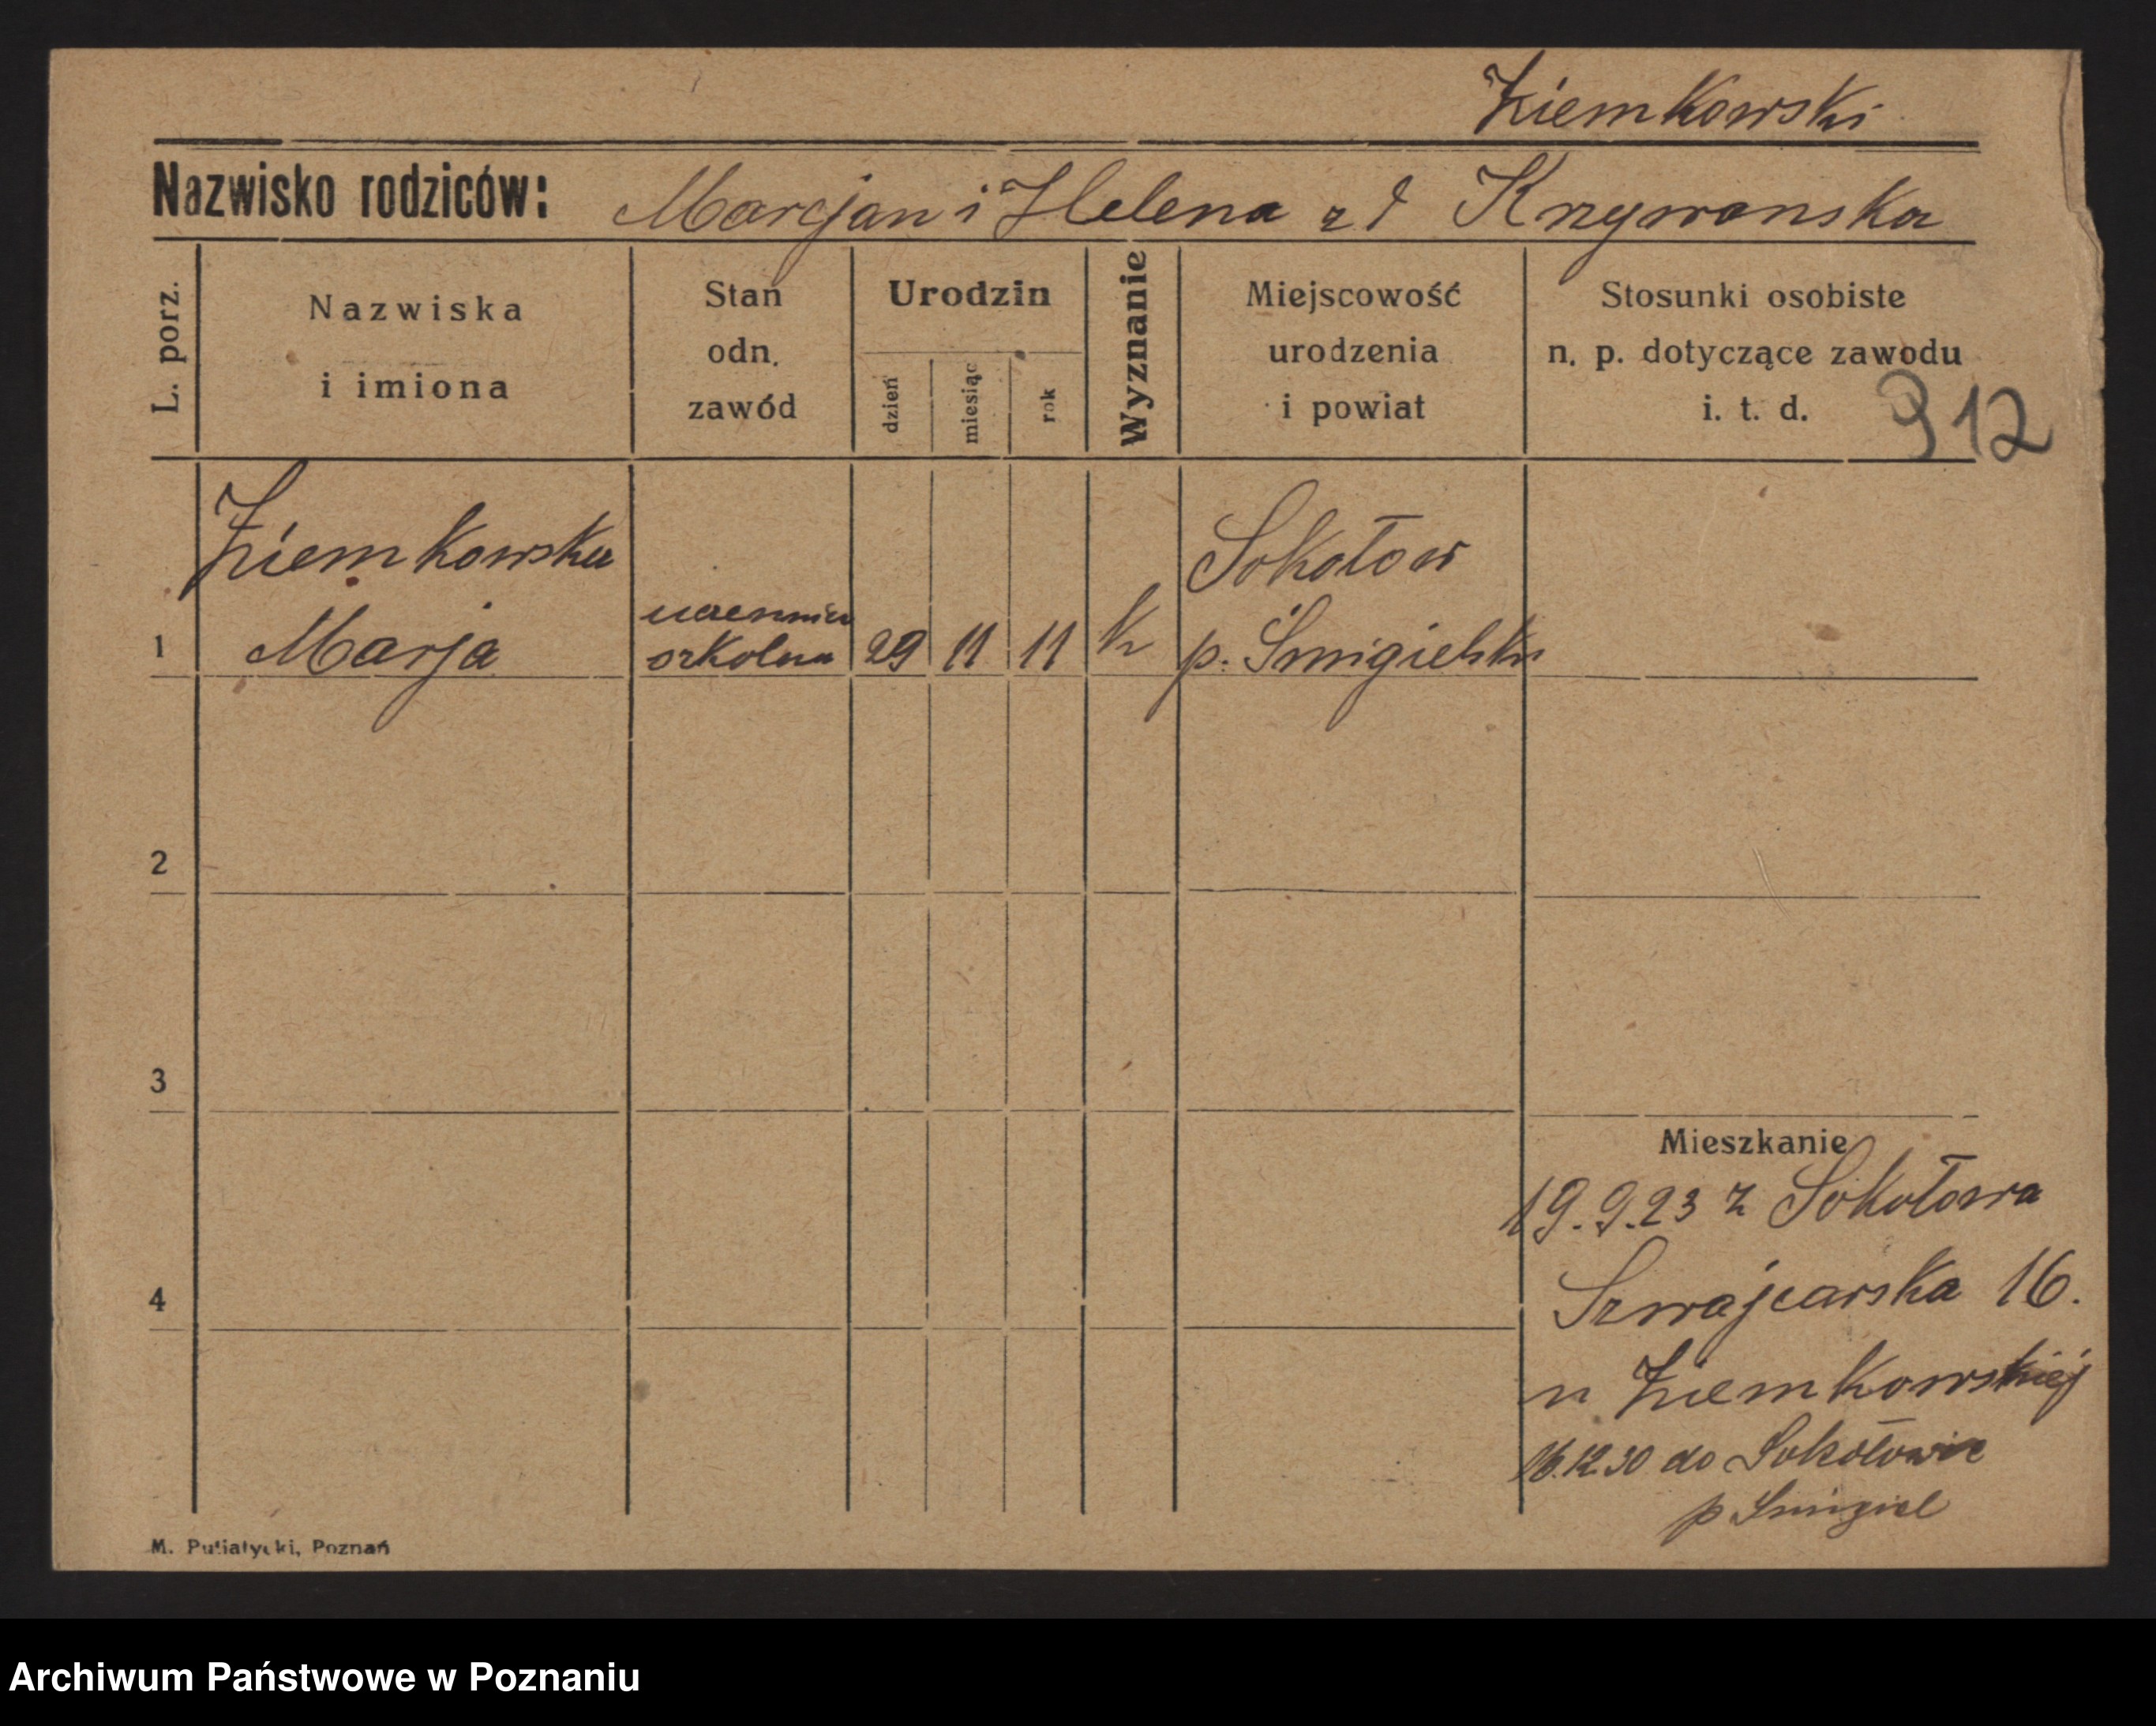 Ziemkowski
Nazwisko rodziców: Marcjan i Helena zd Krzywonska
L. porz.
Nazwiska
i imiona
Stan
odn.
zawód
Urodzin
dzień
miesiąc
rok
Wyznanie
Miejscowość
urodzenia
i powiat
Stosunki osobiste
n. p. dotyczące zawodu
i. t. d.
312
1
Ziemkowska
Marja
uczennica
szkolna
29
11
11
k
Sokołow
p. Śmigielski
2
3
4
Mieszkanie
19.9.23 z Sokołowa
Szwajcarska 16.
u Ziemkowskiej
16.12.30 do
p Śmigiel
M. Putiatycki, Poznań
Archiwum Państwowe w Poznaniu